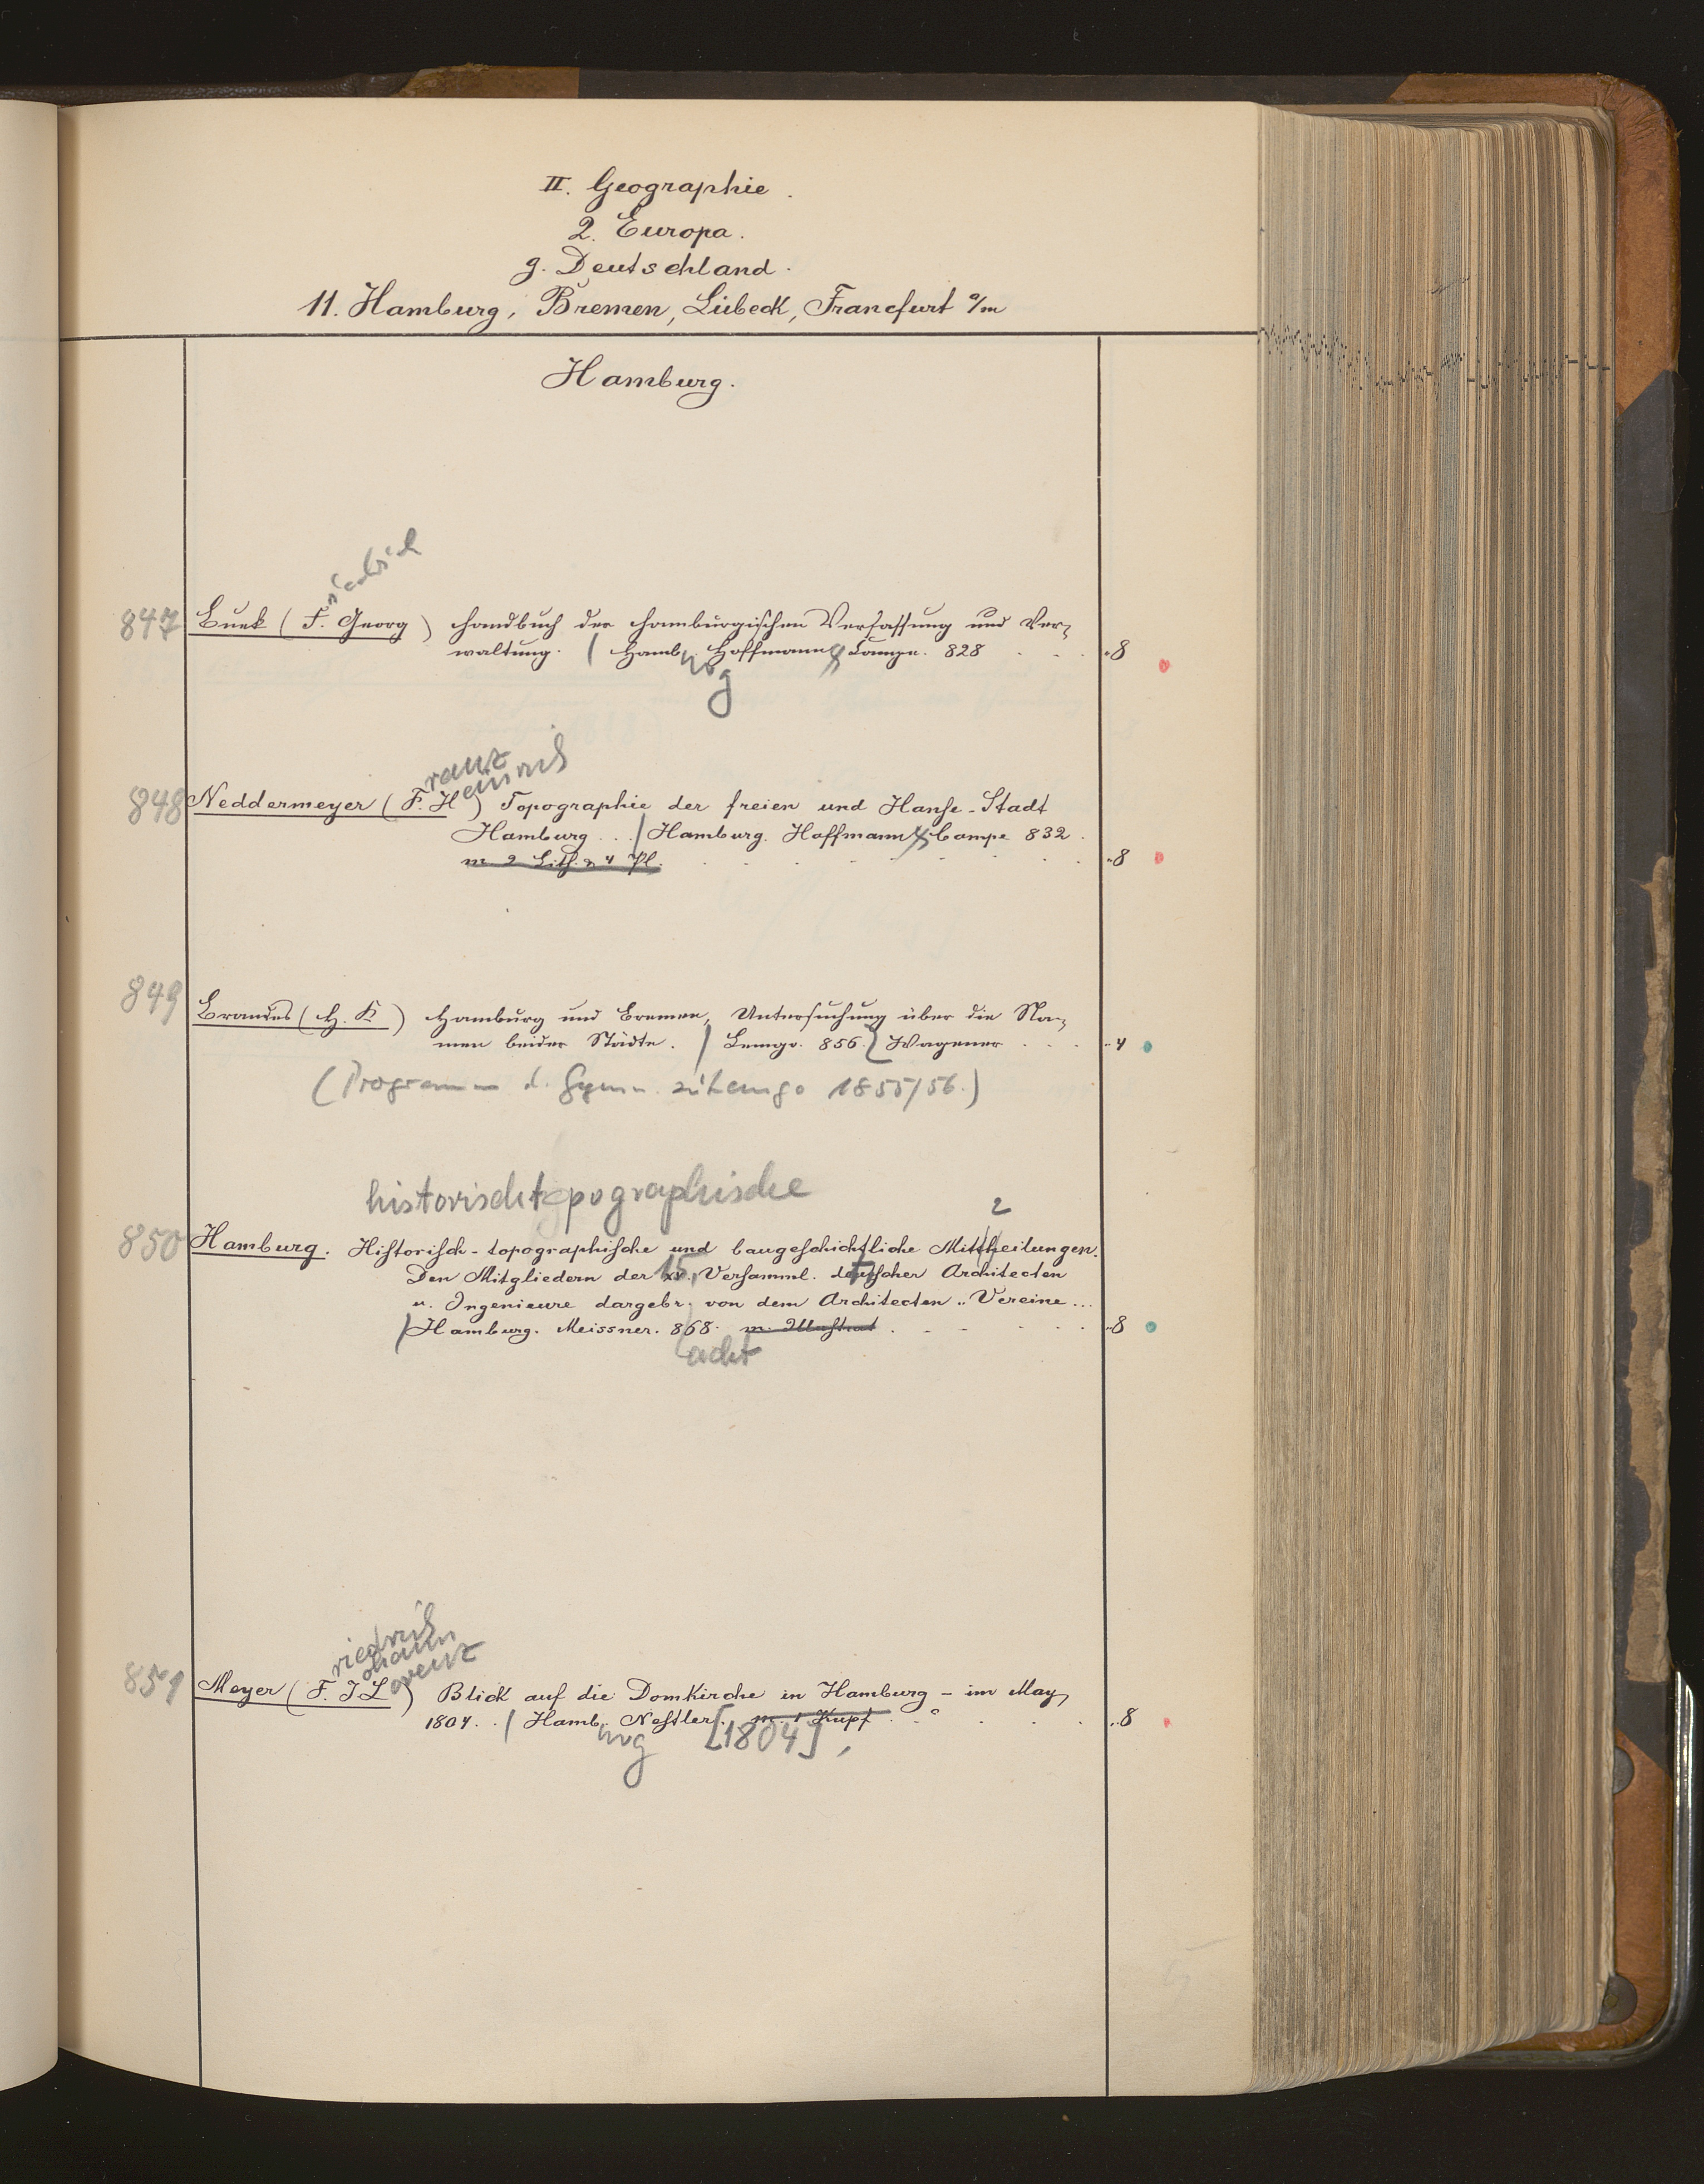 II. Geographie.
2. Europa.
g. Deutschland.
11. Hamburg, Bremen, Lübeck, Francfurt a/m
Hamburg.
riedrich
847 Buek (F. Georg) Handbuch der hamburgischen Verfassung und Ver-
waltung. / Hamb. Hoffmann & Campe. 828 . . . 8
urg
ranz einrich
848 Neddermeyer (F. H) Topographie der freien und Hanse-Stadt
Hamburg . . / Hamburg. Hoffmann & Campe 832.
m 2 Lith. & 4 Pl. 8
849 Brandes (H. K) Hamburg und Bremen, Untersuchung über die Na-
men beider Städte. / Lemgo. 856. Wagener . . . 4
(Programm d. Gymn. zu Lemgo 1855/56.)
historisch topographische
2
850 Hamburg. Historisch-topographische und baugeschichtliche Mittheilungen.
Den Mitgliedern der XV. 15. Versamml. deutscher Architecten
u. Ingenieure dargebr. von dem Architecten „Vereine...
/ Hamburg. Meissner. 868. m. Illustrat . . . 8
acht
riedrich
ohann
orenz
851 Meyer (F. J L) Blick auf die Domkirche in Hamburg - im May
1804. . / Hamb. Nestler. m. 1 Kupf . . . 8
urg [1804]